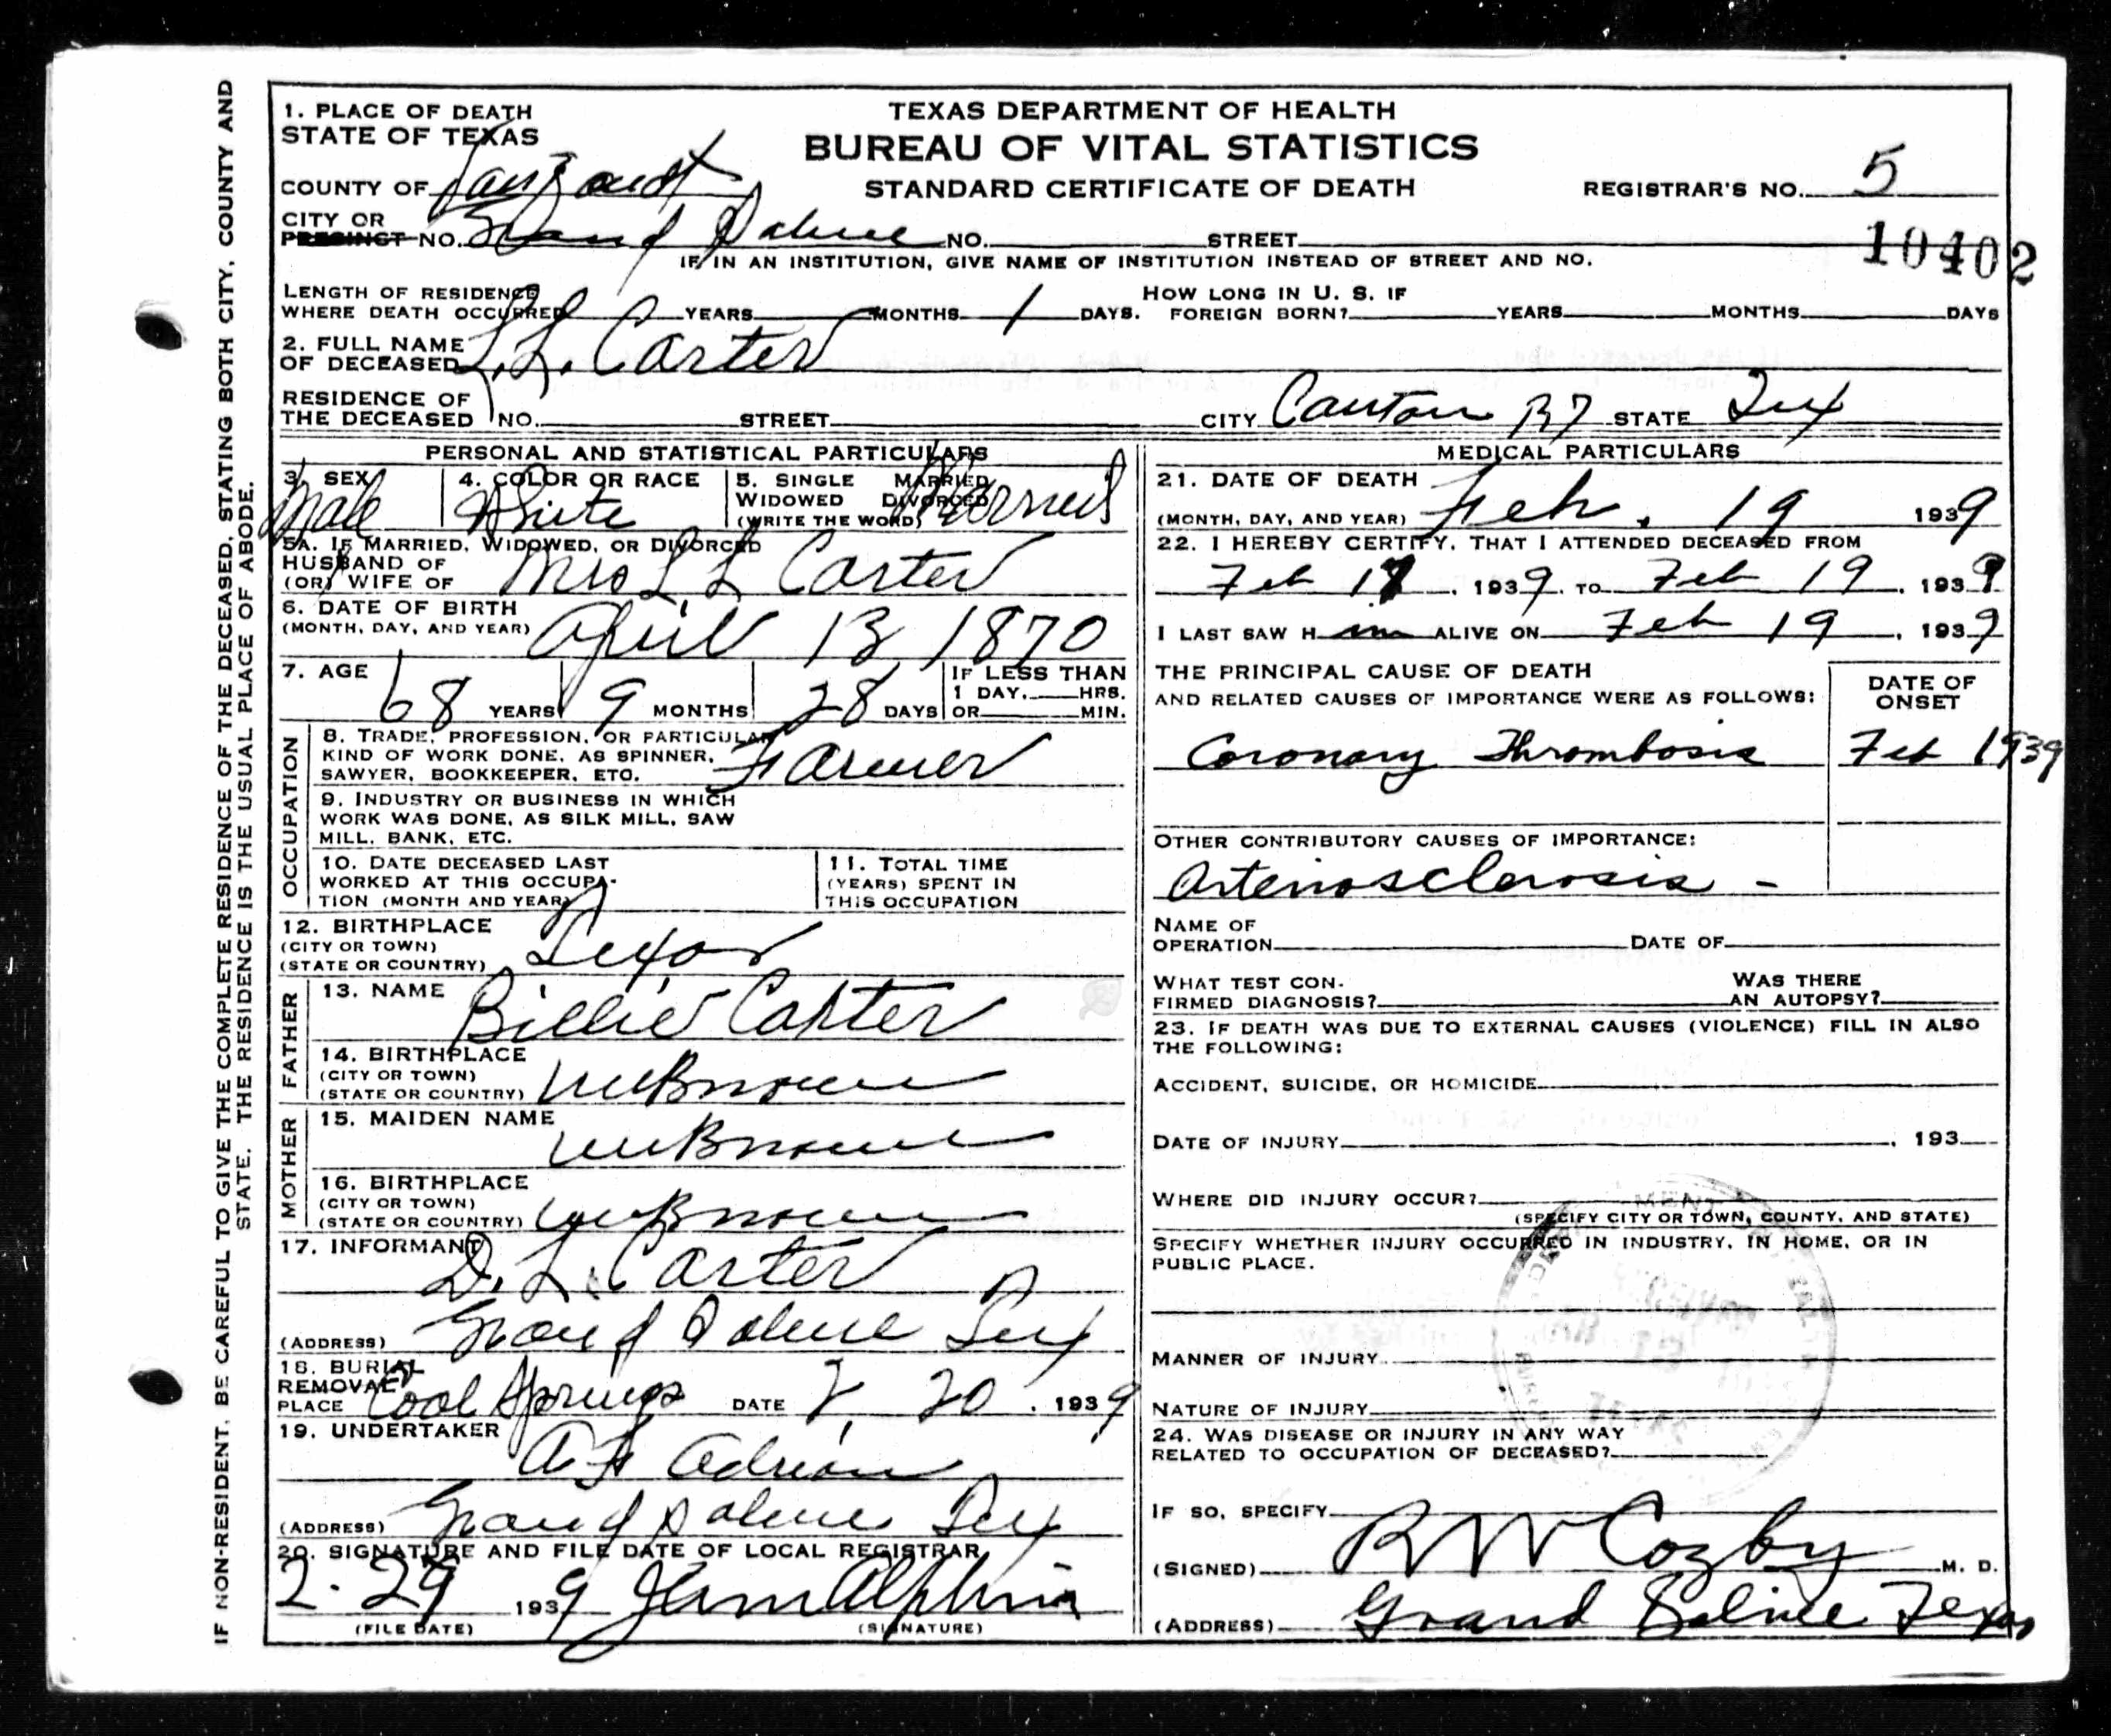 1. PLACE OF DEATH
STATE OF TEXAS
TEXAS DEPARTMENT OF HEALTH
BUREAU OF VITAL STATISTICS
STANDARD CERTIFICATE OF DEATH
COUNTY OF Van Zandt
REGISTRAR'S NO. 5
CITY OR PRECINCT NO. Grand Saline NO. STREET
10402
IF IN AN INSTITUTION, GIVE NAME OF INSTITUTION INSTEAD OF STREET AND NO.
LENGTH OF RESIDENCE WHERE DEATH OCCURRED YEARS MONTHS 1 DAYS. HOW LONG IN U. S. IF FOREIGN BORN? YEARS MONTHS DAYS
2. FULL NAME OF DECEASED L. L. Carter
RESIDENCE OF THE DECEASED NO. STREET CITY Canton R7 STATE Tex
PERSONAL AND STATISTICAL PARTICULARS
3. SEX Male
4. COLOR OR RACE White
5. SINGLE MARRIED WIDOWED DIVORCED (WRITE THE WORD) Married
5A. IF MARRIED, WIDOWED, OR DIVORCED
HUSBAND OF (OR) WIFE OF Mrs L L Carter
6. DATE OF BIRTH (MONTH, DAY, AND YEAR) April 13, 1870
7. AGE 68 YEARS 9 MONTHS 28 DAYS IF LESS THAN 1 DAY, HRS. OR MIN.
OCCUPATION
8. TRADE, PROFESSION, OR PARTICULAR
KIND OF WORK DONE, AS SPINNER,
SAWYER, BOOKKEEPER, ETC. Farmer
9. INDUSTRY OR BUSINESS IN WHICH
WORK WAS DONE, AS SILK MILL, SAW
MILL, BANK, ETC.
10. DATE DECEASED LAST
WORKED AT THIS OCCUPA-
TION (MONTH AND YEAR)
11. TOTAL TIME
(YEARS) SPENT IN
THIS OCCUPATION
12. BIRTHPLACE
(CITY OR TOWN)
(STATE OR COUNTRY) Texas
FATHER
13. NAME Billie Carter
14. BIRTHPLACE
(CITY OR TOWN)
(STATE OR COUNTRY) unknown
MOTHER
15. MAIDEN NAME unknown
16. BIRTHPLACE
(CITY OR TOWN)
(STATE OR COUNTRY) unknown
17. INFORMANT D. L. Carter
(ADDRESS) Grand Saline Tex
18. BURIAL REMOVAL
PLACE Cool Springs DATE 2, 20, 1939
19. UNDERTAKER
Adrian
(ADDRESS) Grand Saline Tex
20. SIGNATURE AND FILE DATE OF LOCAL REGISTRAR
2-29 1939
(FILE DATE) (SIGNATURE)
MEDICAL PARTICULARS
21. DATE OF DEATH
(MONTH, DAY, AND YEAR) Feb. 19 1939
22. I HEREBY CERTIFY, THAT I ATTENDED DECEASED FROM
Feb , 1939, TO Feb 19, 1939
I LAST SAW Him ALIVE ON Feb 19, 1939
THE PRINCIPAL CAUSE OF DEATH
AND RELATED CAUSES OF IMPORTANCE WERE AS FOLLOWS:
DATE OF ONSET
Coronary Thrombosis Feb 1939
OTHER CONTRIBUTORY CAUSES OF IMPORTANCE:
Arteriosclerosis -
NAME OF OPERATION DATE OF
WHAT TEST CON-
FIRMED DIAGNOSIS? WAS THERE AN AUTOPSY?
23. IF DEATH WAS DUE TO EXTERNAL CAUSES (VIOLENCE) FILL IN ALSO
THE FOLLOWING:
ACCIDENT, SUICIDE, OR HOMICIDE
DATE OF INJURY , 193
WHERE DID INJURY OCCUR?
(SPECIFY CITY OR TOWN, COUNTY, AND STATE)
SPECIFY WHETHER INJURY OCCURRED IN INDUSTRY, IN HOME, OR IN
PUBLIC PLACE.
MANNER OF INJURY
NATURE OF INJURY
24. WAS DISEASE OR INJURY IN ANY WAY
RELATED TO OCCUPATION OF DECEASED?
IF SO, SPECIFY
(SIGNED) R W Cozby M. D.
(ADDRESS) Grand Saline Texas
IF NON-RESIDENT, BE CAREFUL TO GIVE THE COMPLETE RESIDENCE OF THE DECEASED, STATING BOTH CITY, COUNTY AND
STATE. THE RESIDENCE IS THE USUAL PLACE OF ABODE.